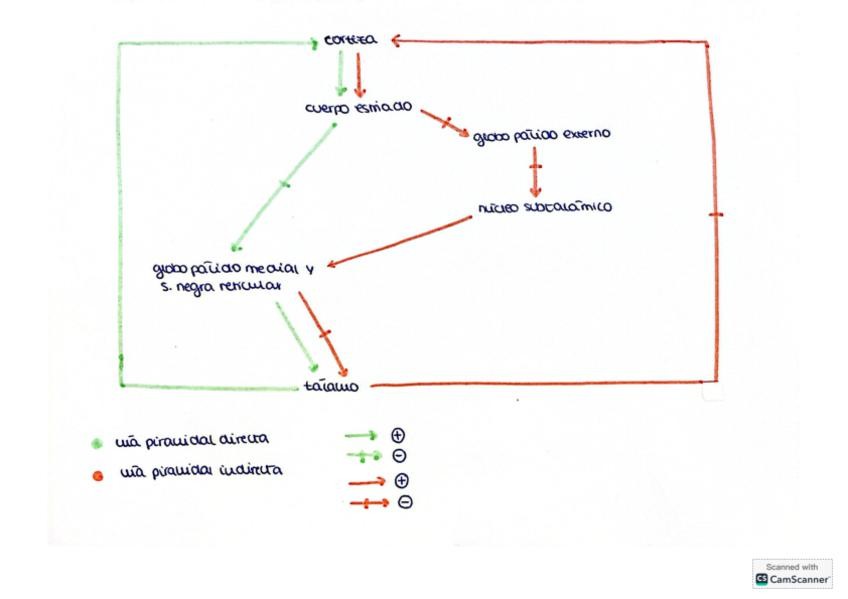 corteza
cuerpo estriado
globo pálido externo
núcleo subtalámico
globo pálido medial y
s. negra reticular
tálamo
vía piramidal directa
+
-
vía piramidal indirecta
+
-
Scanned with
CS CamScanner